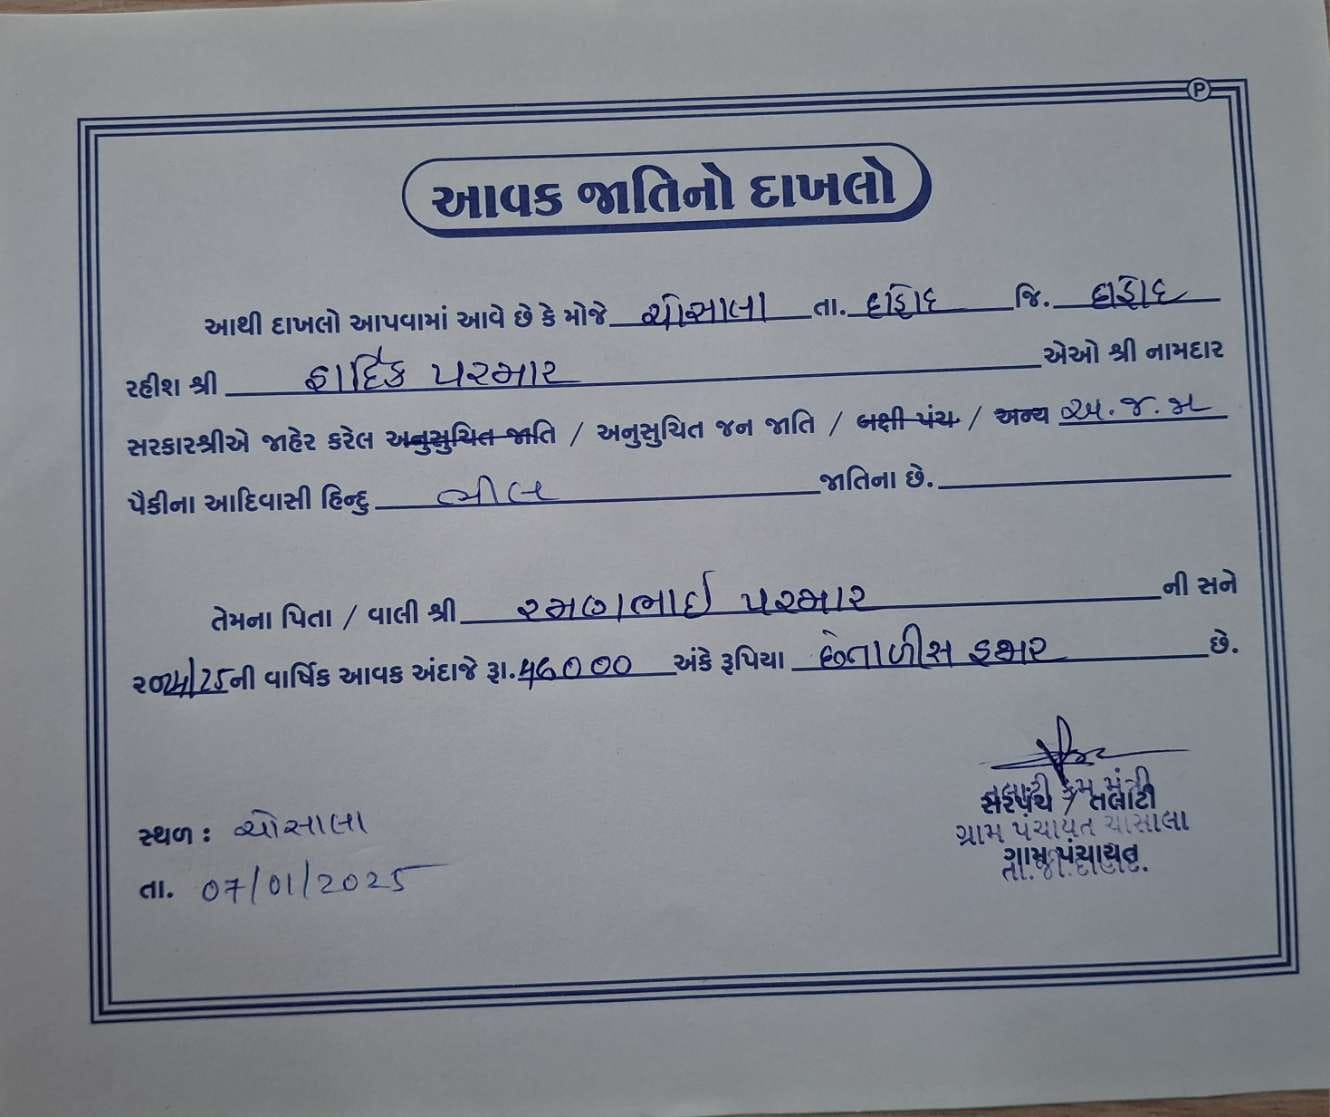 P
આવક જાતિનો દાખલો
આથી દાખલો આપવામાં આવે છે કે મોજે ચોસાલા તા. દાહોદ જિ. દાહોદ
રહીશ શ્રી હાર્દિક પરમાર એઓ શ્રી નામદાર
સરકારશ્રીએ જાહેર કરેલ અનુસુચિત જાતિ / અનુસુચિત જન જાતિ / બક્ષી પંચ / અન્ય અ.જ.જા
પૈકીના આદિવાસી હિન્દુ ભીલ જાતિના છે.
તેમના પિતા / વાલી શ્રી રમણભાઈ પરમાર ની સને
૨૦૨૪/25ની વાર્ષિક આવક અંદાજે રૂા. 46000 અંકે રૂપિયા છેતાળીસ હજાર છે.
સ્થળ : ચોસાલા
તા. 07/01/2025
તલાટી કમ મંત્રી
સરપંચ / તલાટી
ગ્રામ પંચાયત ચોસાલા
ગ્રામ પંચાયત
તા.જી.દાહોદ.